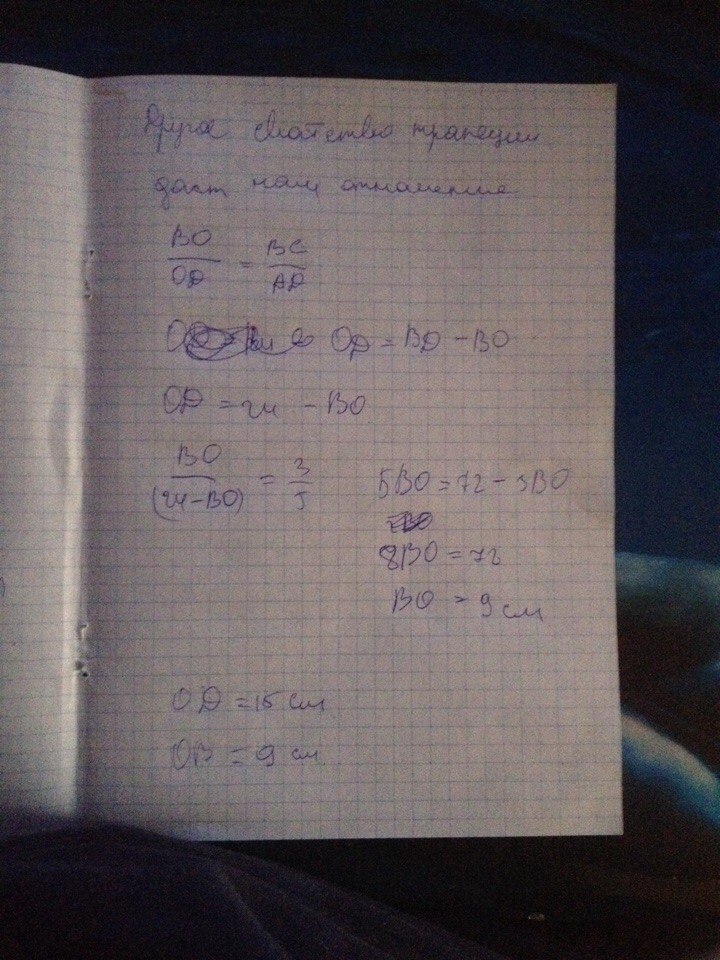 Другое свойство трапеции
даст нам отношение
BO/OD = BC/AD
OD = BD - BO
OD = 24 - BO
BO/(24-BO) = 3/5
5BO = 72 - 3BO
8BO = 72
BO = 9 см
OD = 15 см
OB = 9 см